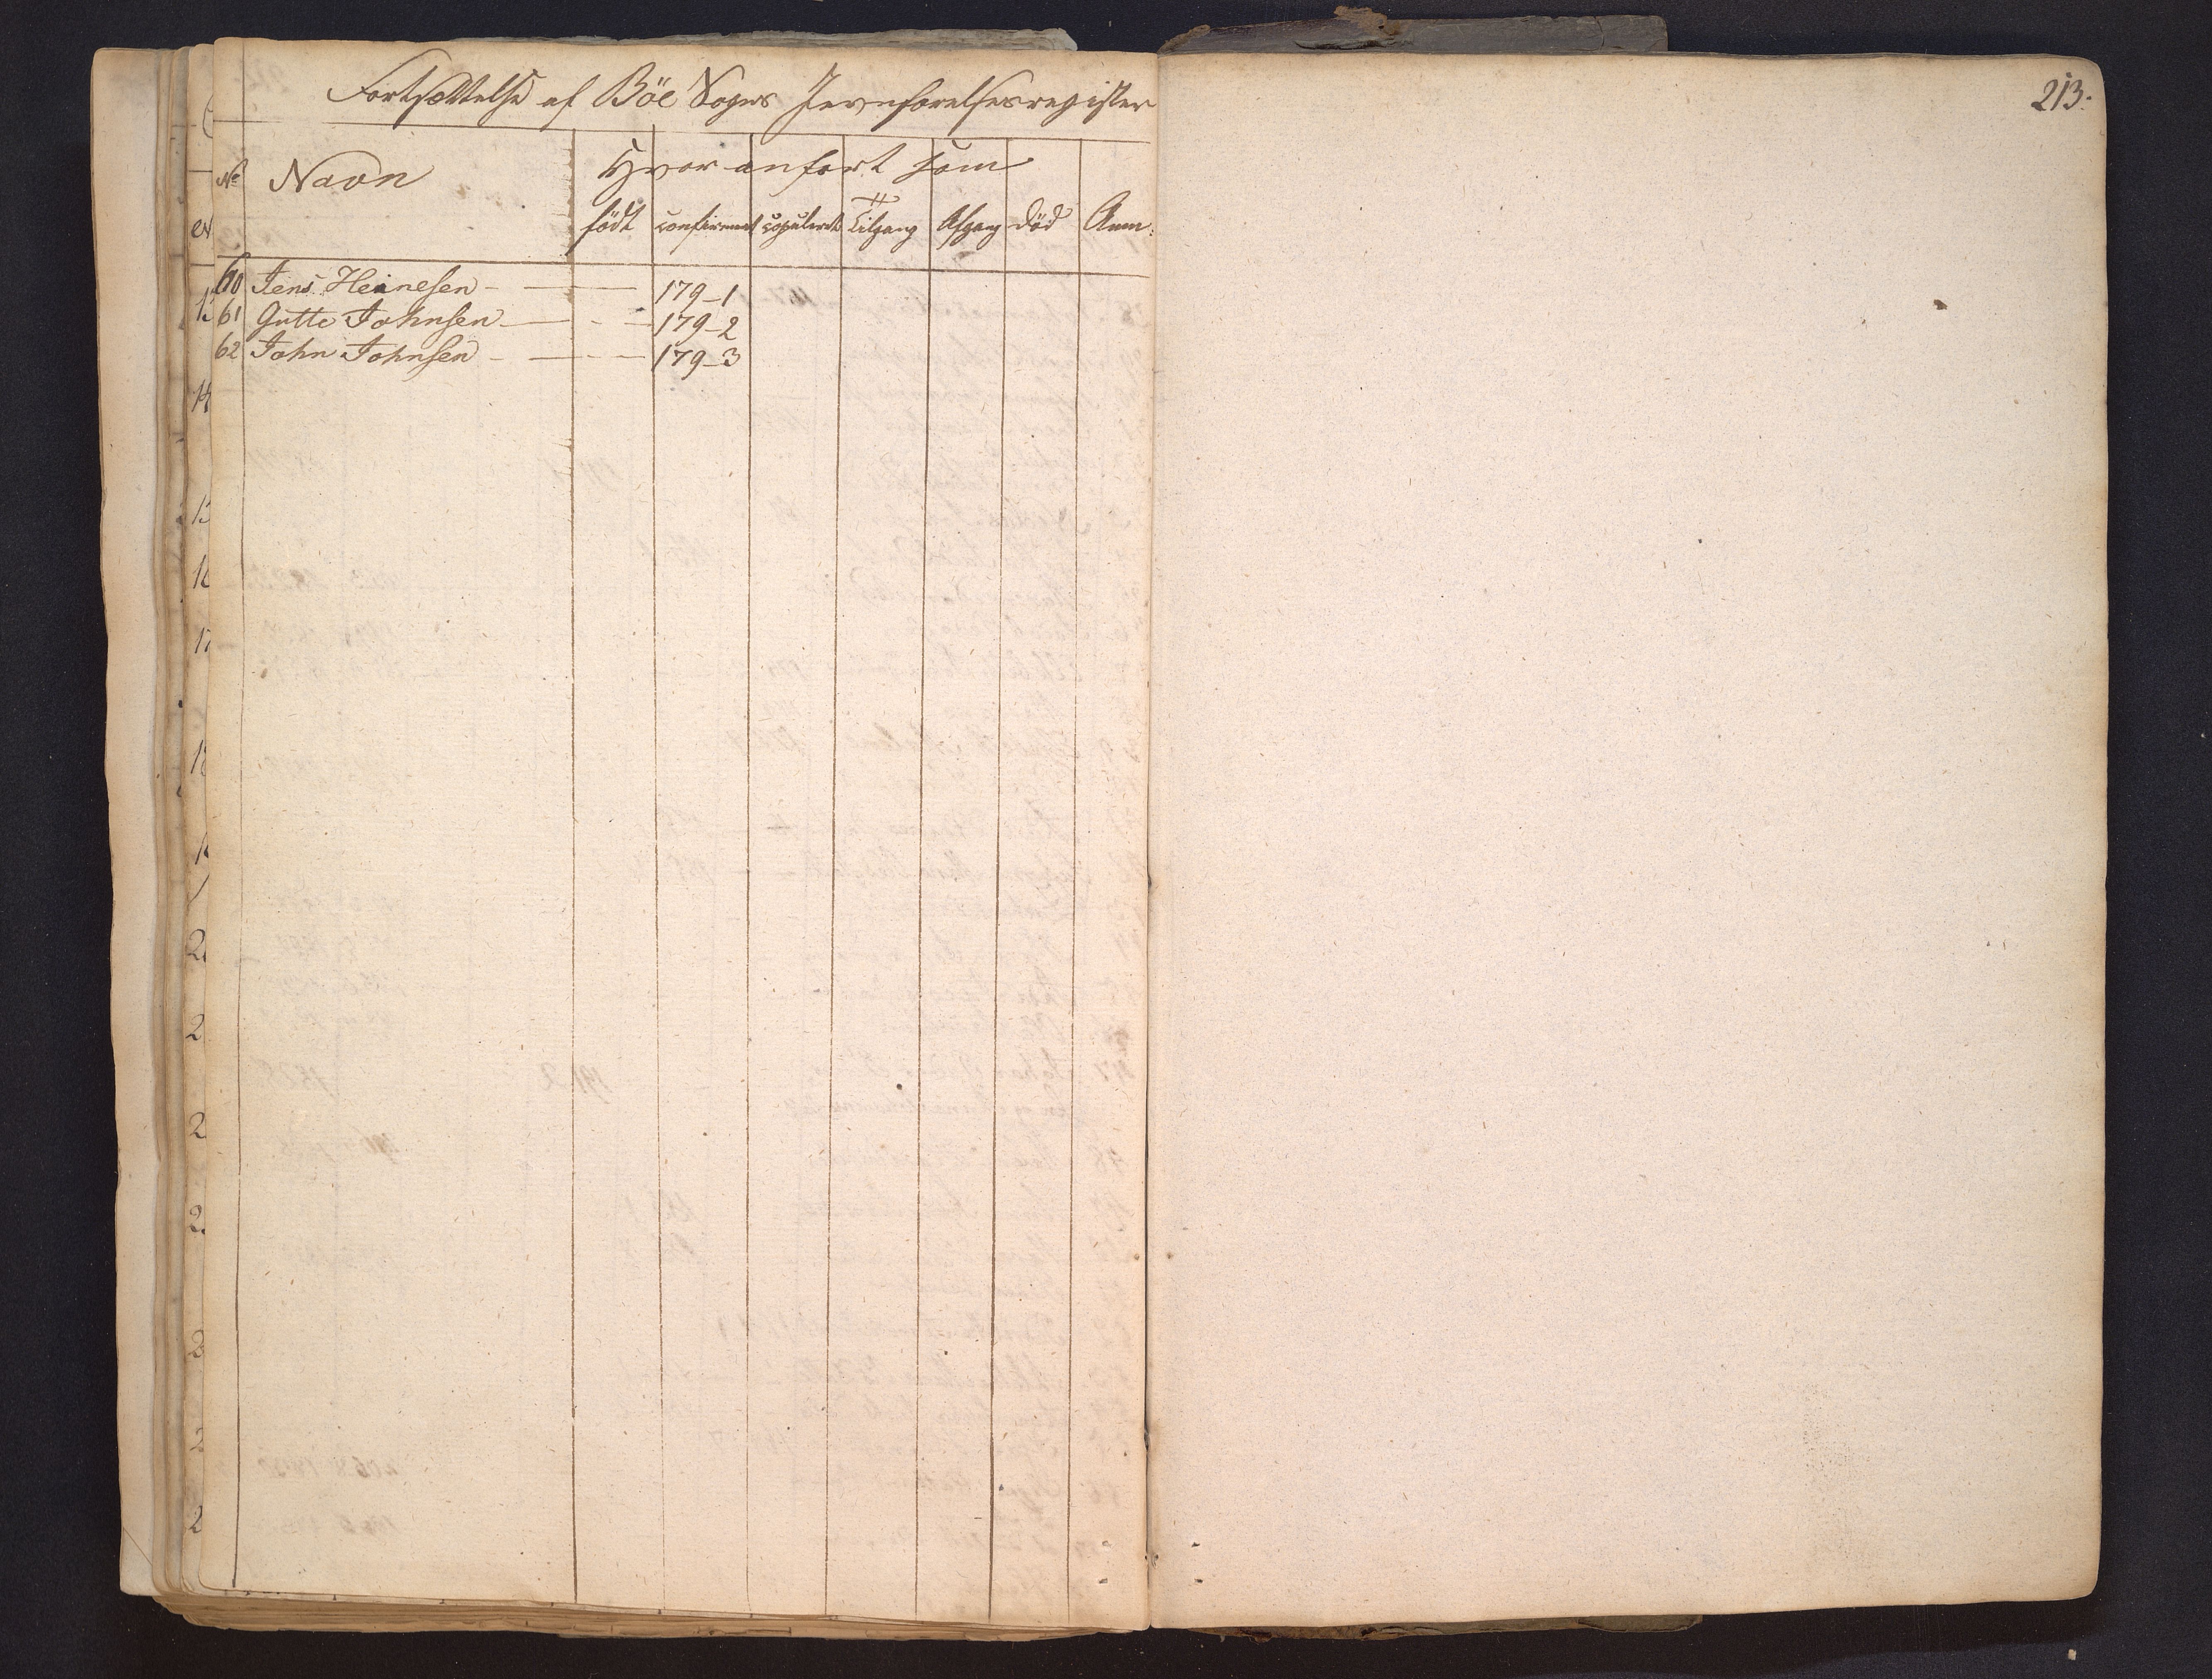 Fortsættelse af Böe Sogns Jevnførelsesregister
213.
No Navn Hvor anfört som
födt confirmeret copuleret Tilgang Afgang död Anm:
60 Jens Heinesen - 179-1
61 Gutte Johnsen - 179-2
62 John Johnsen - 179-3